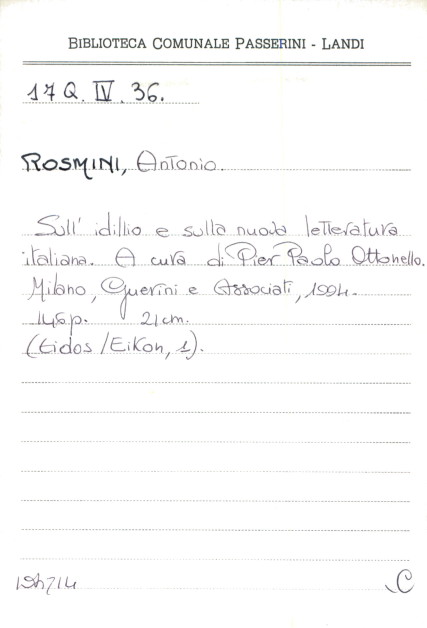 BIBLIOTECA COMUNALE PASSERINI - LANDI
17 Q. IV. 36.
ROSMINI, Antonio.
Sull' idillio e sulla nuova letteratura
italiana. A cura di Pier Paolo Ottonello.
Milano, Guerini e Associati, 1994.
146 p. 21 cm.
(Eidos/Eikon, 1).
C